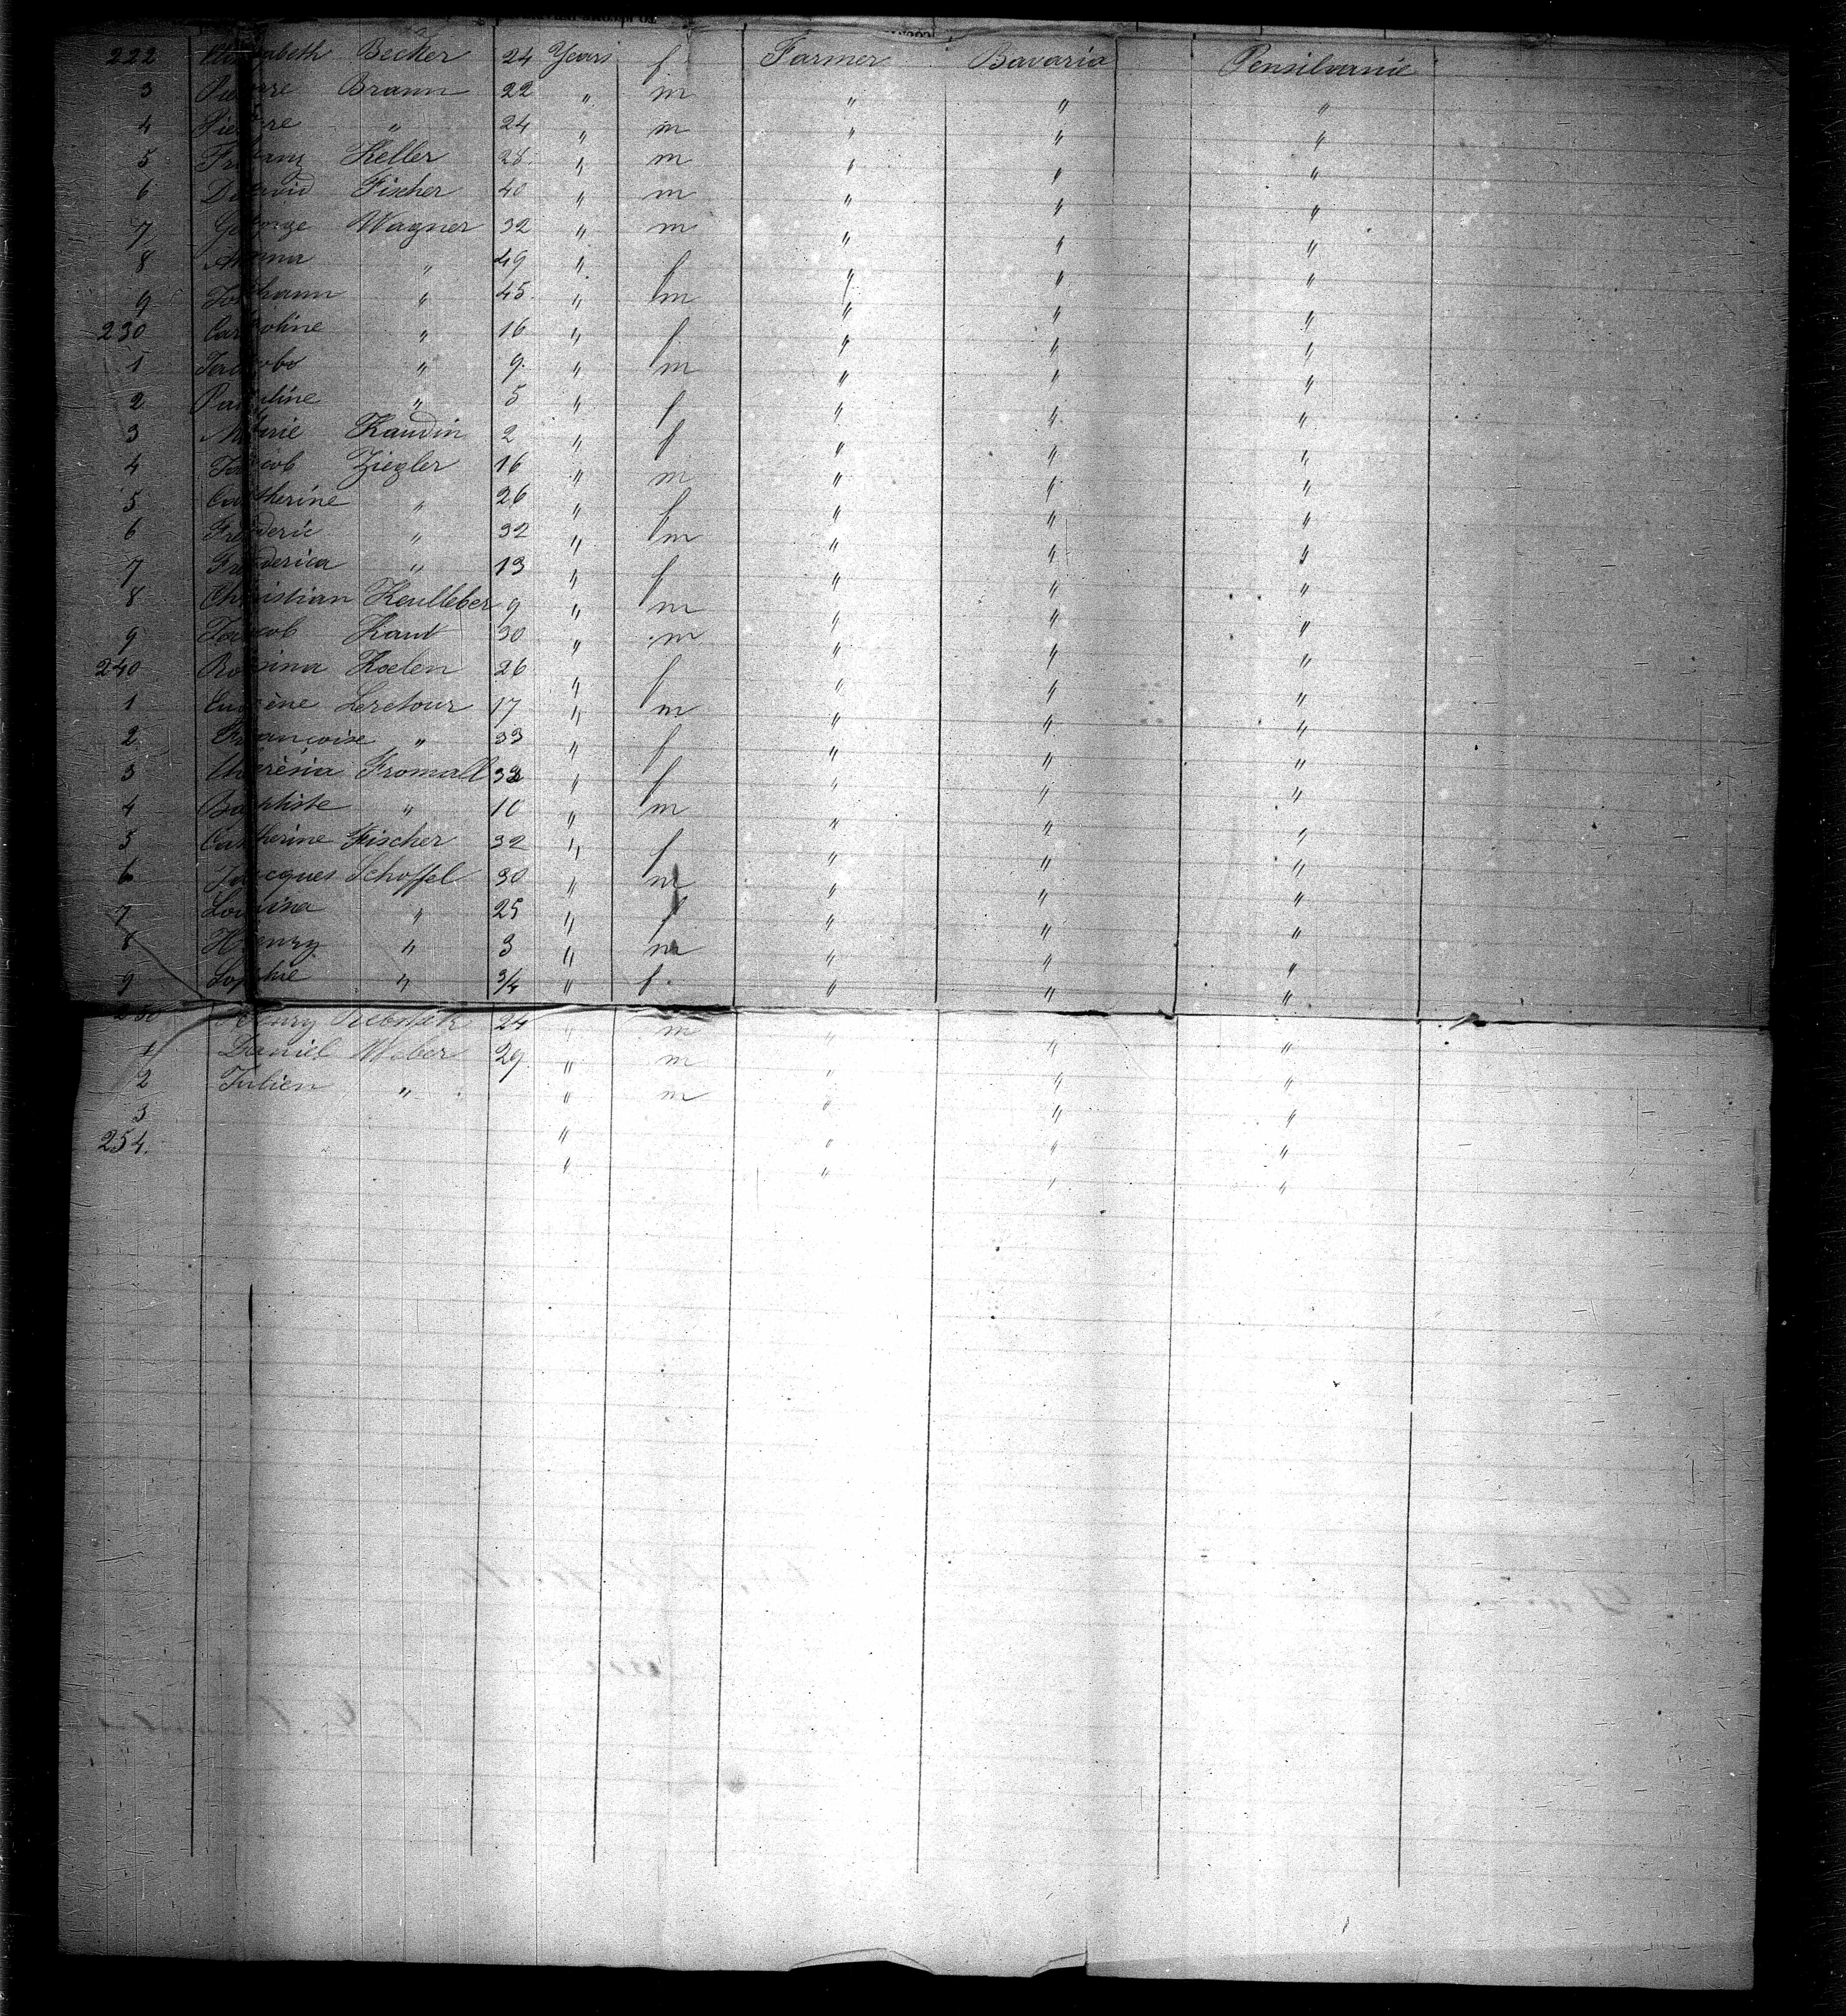 222 Elisabeth Becker 24 Years f Farmer Bavaria Pensilvanie
3 Pierre Braun 22 " m " " "
4 Pierre " 24 " m " " "
5 Keller 28 " m " " "
6 David Fischer 40 " m " " "
7 George Wagner 32 " m " " "
8 Anna " 49 " f " " "
9 Johann " 45 " m " " "
230 Caroline " 16 " f " " "
1 " 9 " m " " "
2 Pauline " 5 " f " " "
3 Marie Kaudin 2 " f " " "
4 Jacob Ziegler 16 " m " " "
5 Catherine " 26 " f " " "
6 Frederic " 32 " m " " "
7 Frederica " 13 " f " " "
8 Christian Keulleber 9 " m " " "
9 Jacob Kaut 30 " m " " "
240 Rosina Koelen 26 " f " " "
1 Eugène Leretour 17 " m " " "
2 Françoise " 33 " f " " "
3 Therèsia Fromall " f " " "
4 Baptiste " 10 " m " " "
5 Catherine Fischer 32 " f " " "
6 Jacques Schoffel 30 " m " " "
7 " 25 " f " " "
8 Henry " 3 " m " " "
9 Sophie " 3/4 " f " " "
250 Henry 24 " m " " "
1 Daniel Weber 29 " m " " "
2 Julien " " m " " "
3 " " " "
254. " " " "